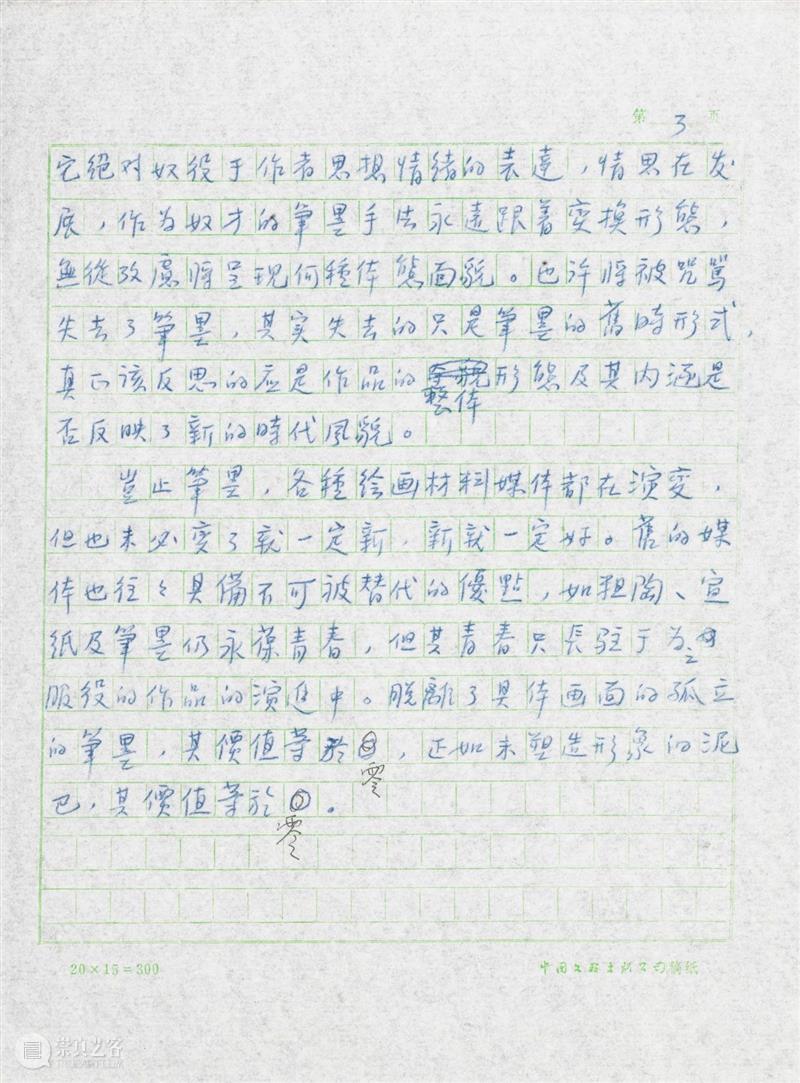 第 3 页
它絕对奴役于作者思想情緒的表達，情思在发
展，作为奴才的筆墨手法永遠跟着变換形態，
無從攷慮將呈現何種体態面貌。也许將被咒罵
失去了筆墨，其实失去的只是筆墨的舊時形式，
真正该反思的应是作品的形態及其内涵是
整体
否反映了新的時代風貌。
豈止筆墨，各種绘画材料媒体都在演变，
但也未必变了就一定新，新就一定好。舊的媒
体也往々具備不可被替代的優點，如粗陶、宣
纸及筆墨仍永葆青春，但其青春只長駐于为之
服役的作品的演進中。脱離了具体画面的孤立
的筆墨，其價值等於
零
，正如未塑造形象的泥
巴，其價值等於
零
。
20×15=300
崇真艺客